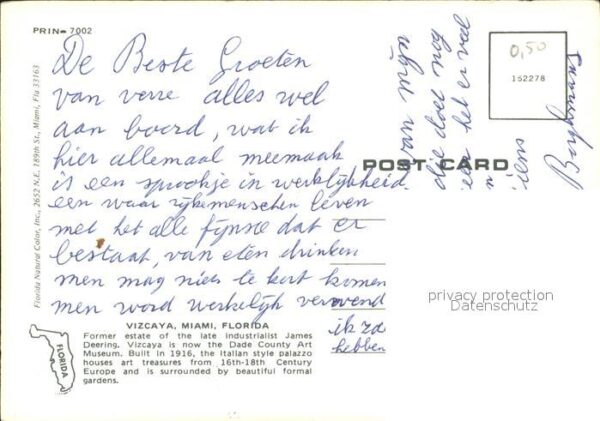 PRIN- 7002
De Beste Groeten
van verre alles wel
aan boord, wat ik
hier allemaal meemaak
is een sprookje in werkelijkheid
een waar rijkemenschen leven
met het alle fijnste dat er
bestaat, van eten drinken
men mag niets te kort komen
men word werkelijk verwend
ik zo
hebben
van mijn
die doet nog
een het er veel
0,50
152278
POST CARD
Florida Natural Color, Inc., 2652 N.E. 189th St., Miami, Fla 33163
privacy protection
Datenschutz
FLORIDA
VIZCAYA, MIAMI, FLORIDA
Former estate of the late industrialist James
Deering. Vizcaya is now the Dade County Art
Museum. Built in 1916, the Italian style palazzo
houses art treasures from 16th-18th Century
Europe and is surrounded by beautiful formal
gardens.